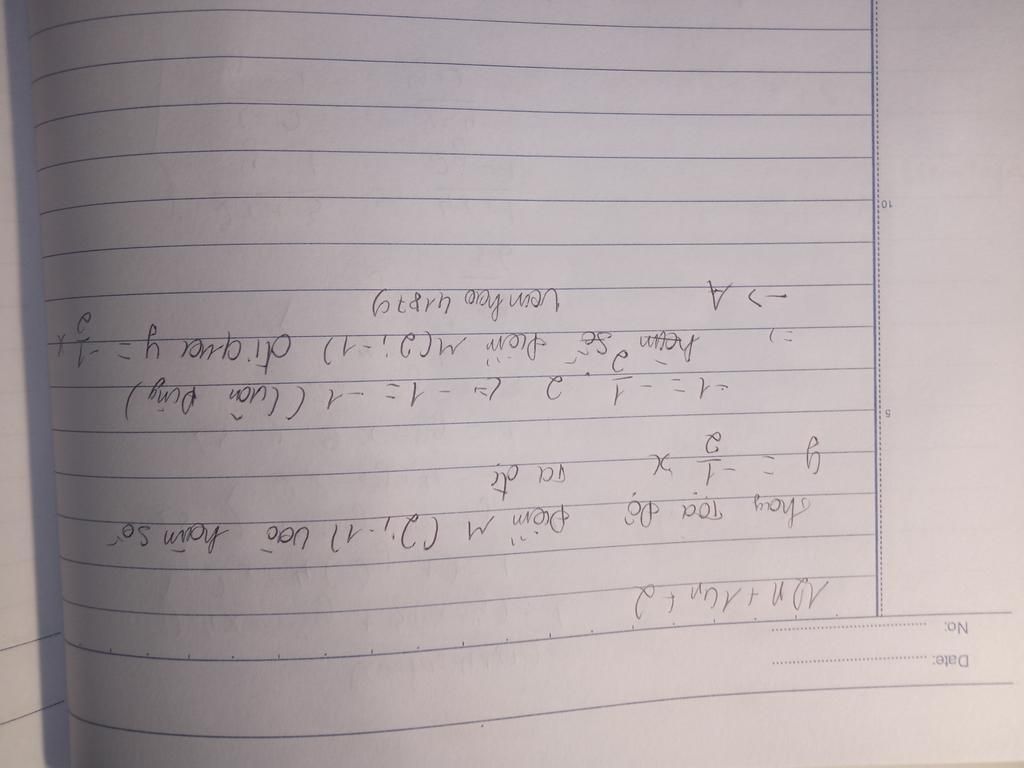 Date:
No:
12n + 14n + 2
thay tọa độ điểm M (2; -1) vào hàm số
y = -1/2 x ta đc
-1 = -1/2 . 2 (= -1 = -1 (luôn đúng)
=> hàm số điểm M(2; -1) đi qua y = -1/2 x
-> A
5
10